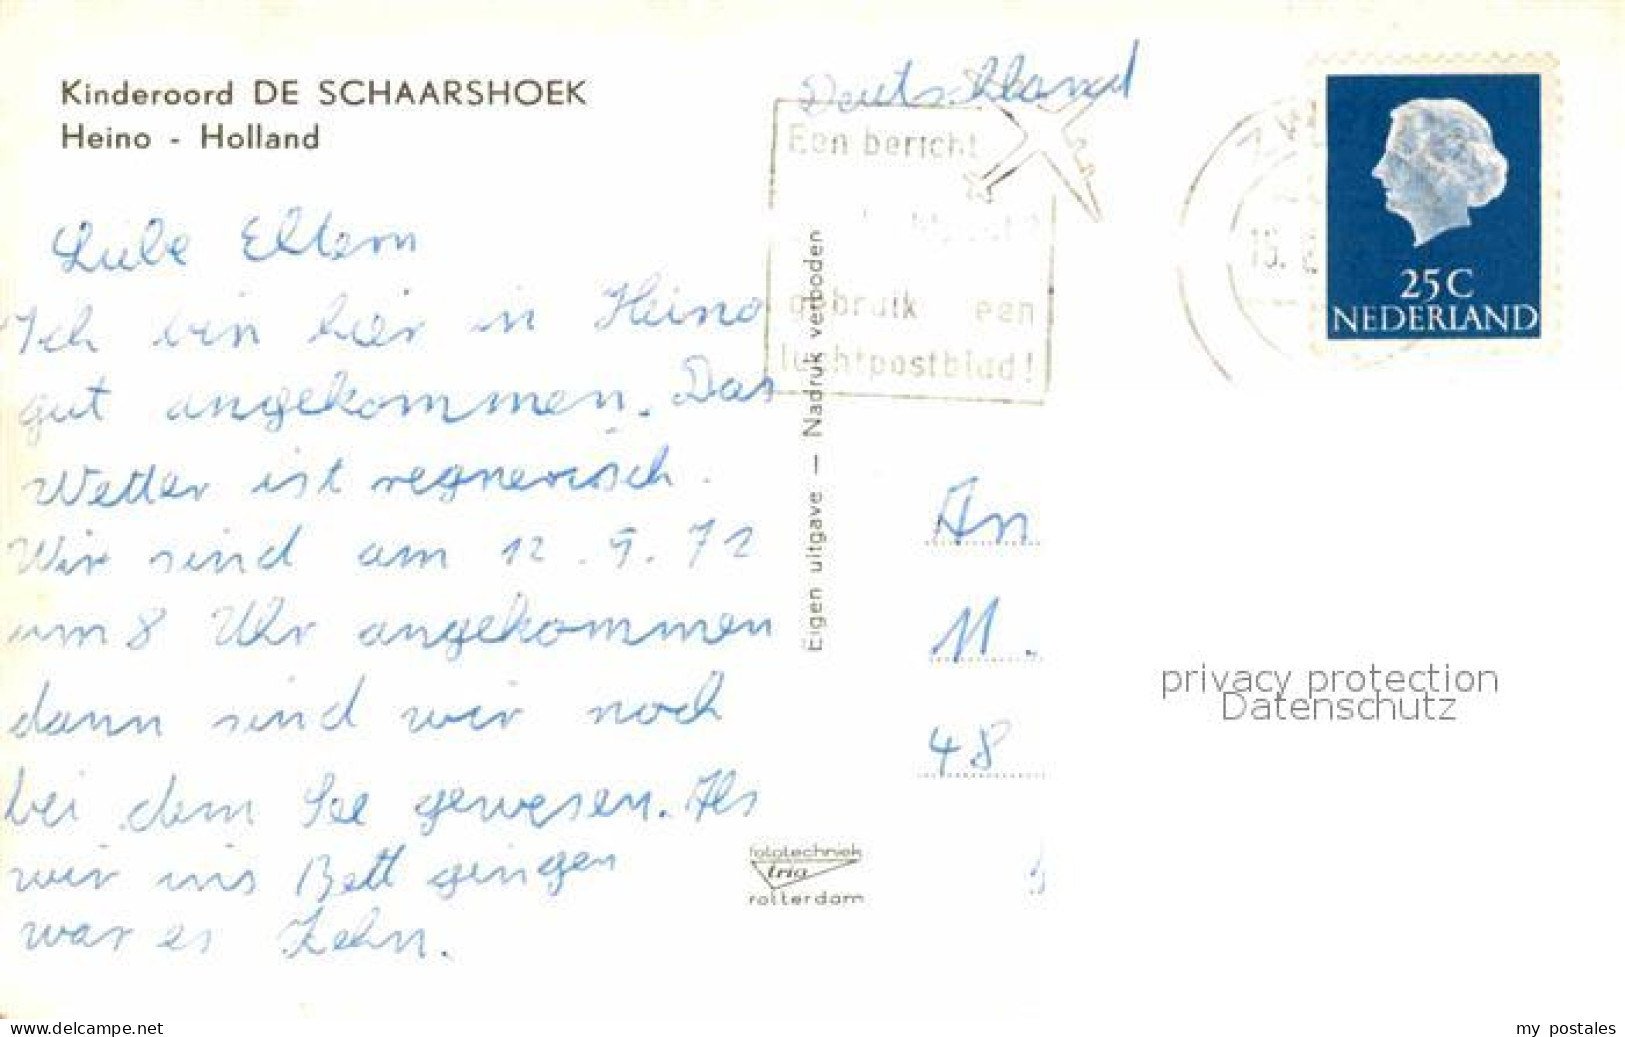 Kinderoord DE SCHAARSHOEK
Heino - Holland
Deutschland
Een bericht
gebruik een
luchtpostblad!
25 C
NEDERLAND
Liebe Eltern
Ich bin hier in Heino
gut angekommen. Das
Wetter ist regnerisch.
Wir sind am 12.9.72
um 8 Uhr angekommen
dann sind wir noch
bei dem See gewesen. Als
wir ins Bett gingen
war es Zehn.
Eigen uitgave — Nadruk verboden
An
11.
48
fototechniek
trio
rotterdam
privacy protection
Datenschutz
www.delcampe.net
my postales